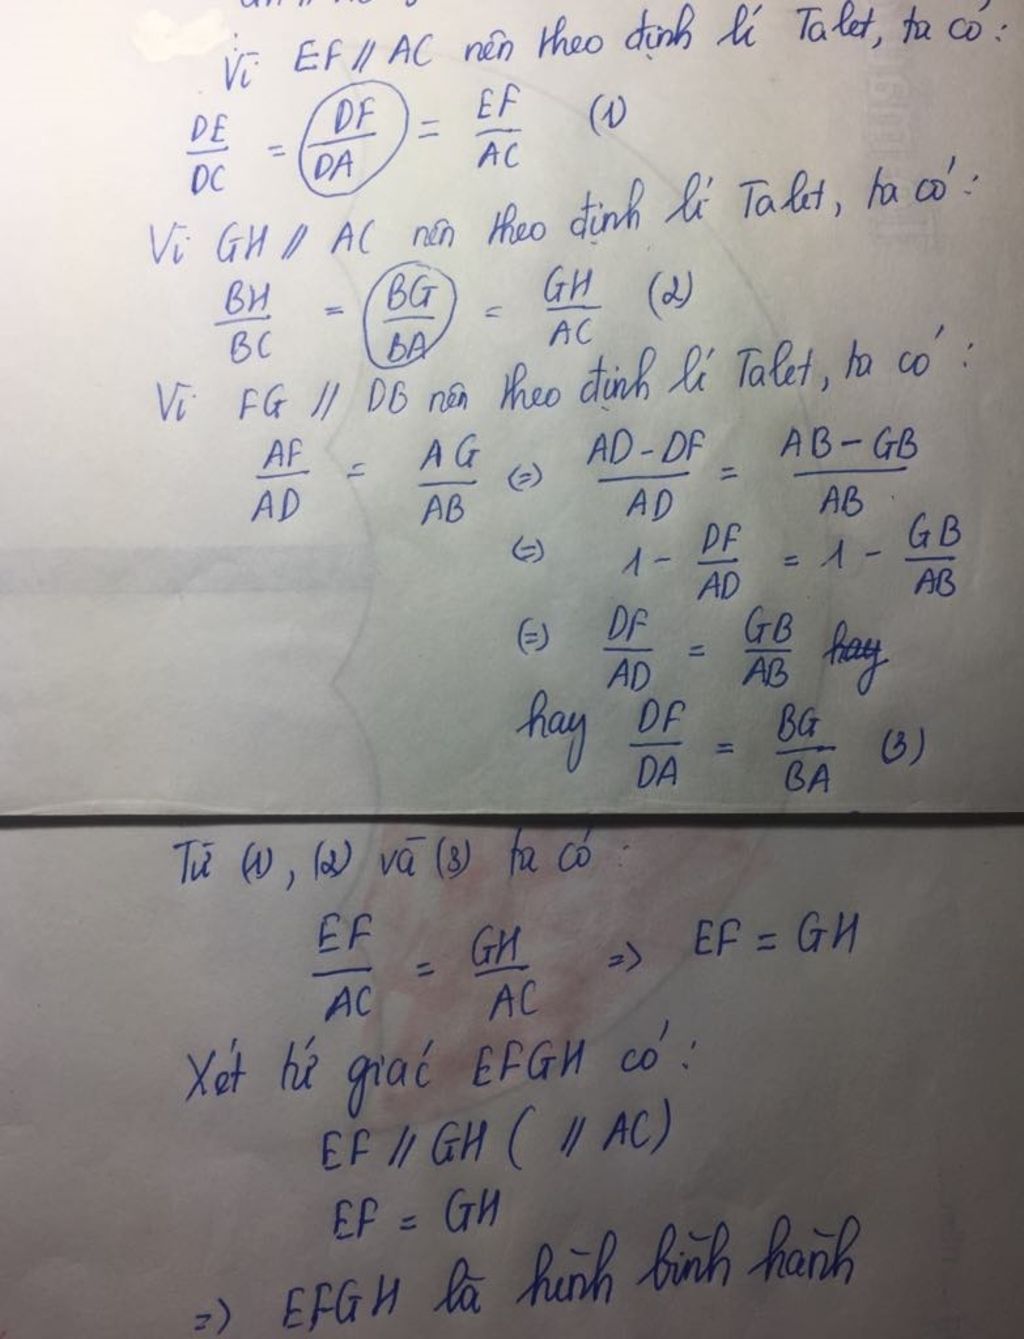 Vì EF // AC nên theo định lí Talet, ta có:
DE/DC = DF/DA = EF/AC (1)
Vì GH // AC nên theo định lí Talet, ta có:
BH/BC = BG/BA = GH/AC (2)
Vì FG // DB nên theo định lí Talet, ta có:
AF/AD = AG/AB (=) AD - DF/AD = AB - GB/AB
(=) 1 - DF/AD = 1 - GB/AB
(=) DF/AD = GB/AB hay
hay DF/DA = BG/BA (3)
Từ (1), (2) và (3) ta có:
EF/AC = GH/AC => EF = GH
Xét tứ giác EFGH có:
EF // GH ( // AC)
EF = GH
=> EFGH là hình bình hành